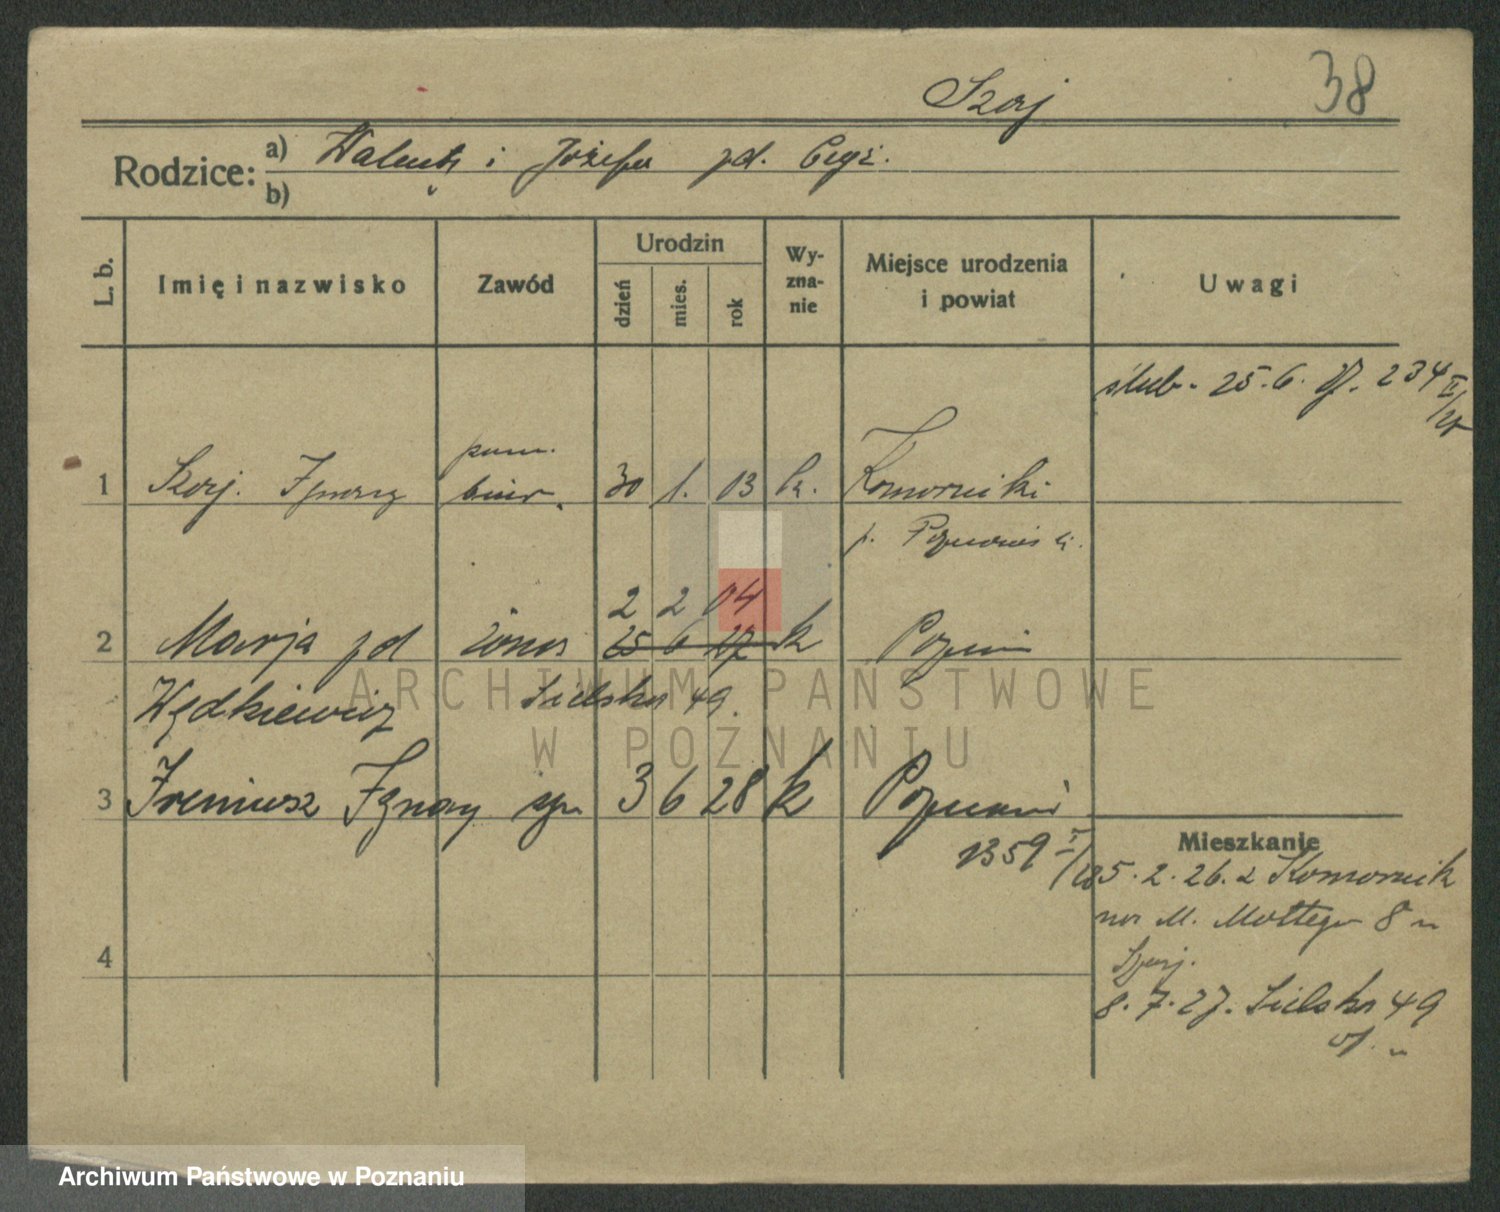 Szaj
38
Rodzice: a) Walenty i Józefa zd. Cegż.
b)
L. b.
Imię i nazwisko
Zawód
Urodzin
dzień
mies.
rok
Wy-
zna-
nie
Miejsce urodzenia
i powiat
Uwagi
ślub. 25.6.27. 234
pom.
1 Szaj. Ignacy biur. 30 1. 03 k. Komorniki
p. Poznański.
2 2 04
2 Marja zd żona 25 6 27 k Poznań
Wędkiewicz Sielska 49.
3 Ireniusz Ignacy syn 3 6 28 k Poznań
1359
Mieszkanie
5.2.26. z Komornik
na M. Mottego 8
Szaj.
8.7.27. Sielska 49
4
ARCHIWUM PAŃSTWOWE
W POZNANIU
Archiwum Państwowe w Poznaniu